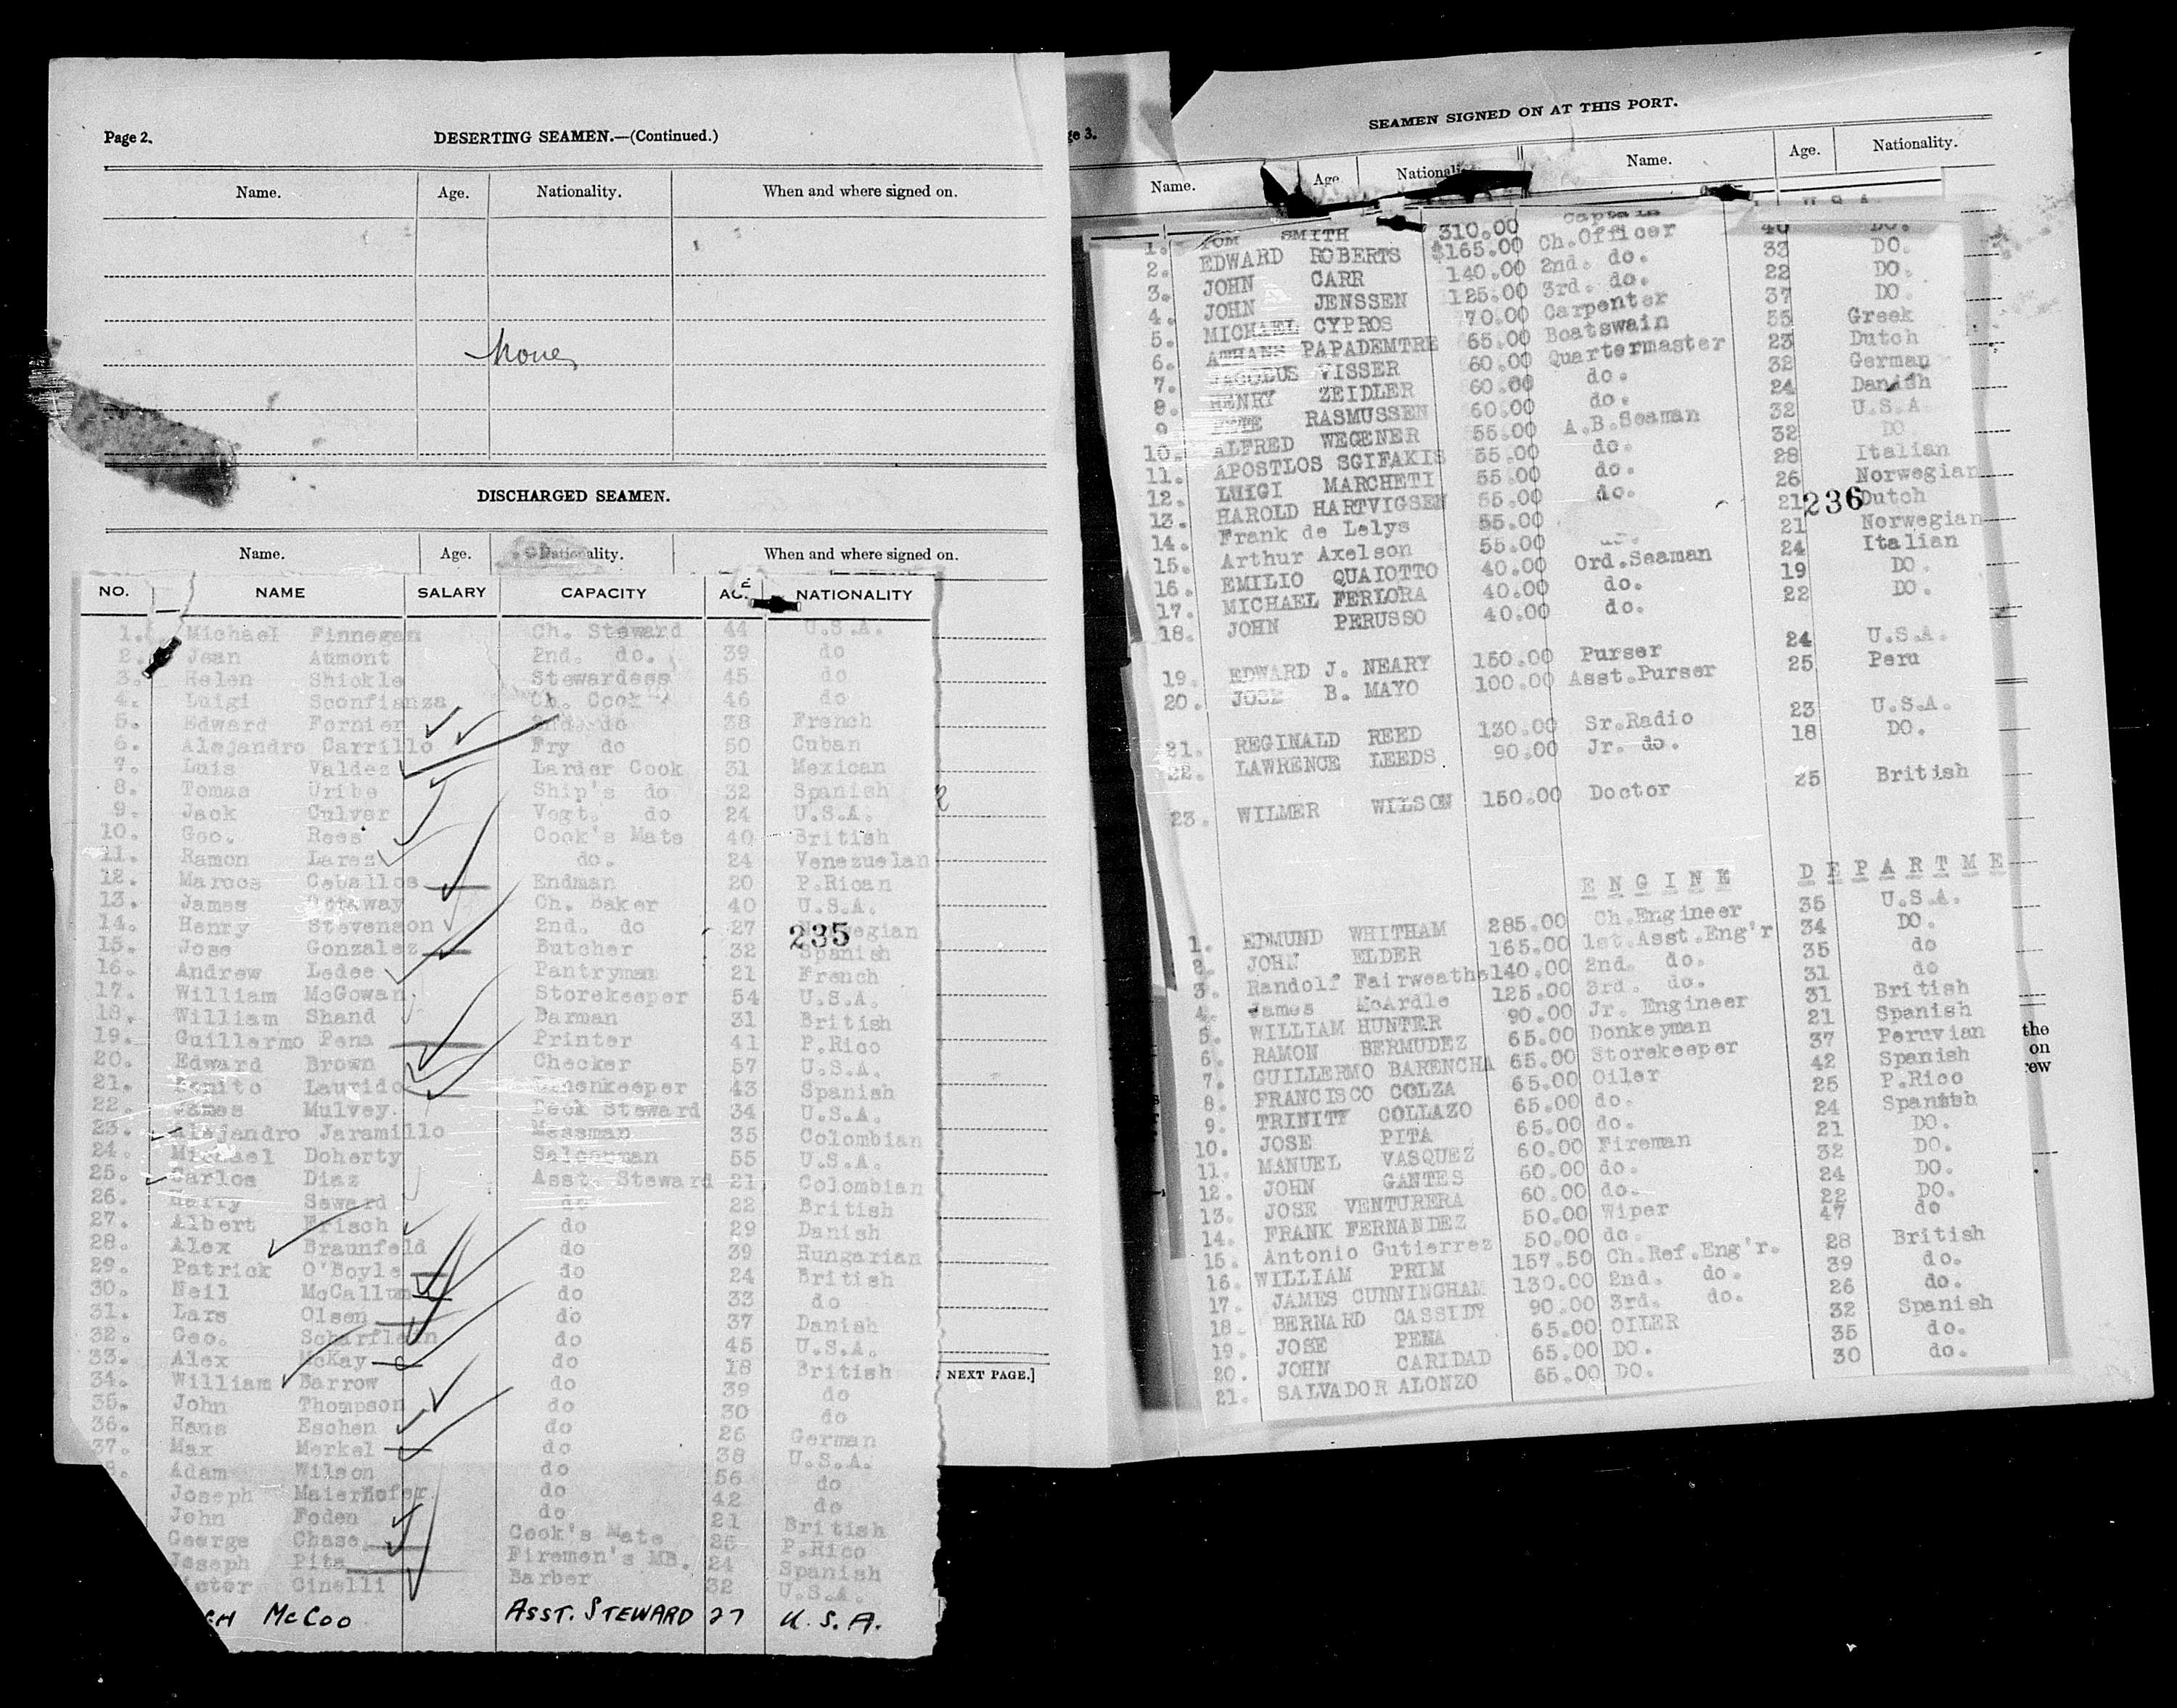 Page 2. DESERTING SEAMEN.—(Continued.)
Name. Age. Nationality. When and where signed on.
None
DISCHARGED SEAMEN.
Name. Age. Nationality. When and where signed on.
NO. NAME SALARY CAPACITY AGE NATIONALITY
1. Michael Finnegan Ch. Steward 44 U.S.A.
2. Jean Aumont 2nd. do. 39 do
3. Helen Shickle Stewardess 45 do
4. Luigi Sconfianza Ch. Cook 46 do
5. Edward Fornier 2nd. do 38 French
6. Alejandro Carrillo Fry do 50 Cuban
7. Luis Valdez Larder Cook 31 Mexican
8. Tomas Uribe Ship's do 32 Spanish
9. Jack Culver Vegt. do 24 U.S.A.
10. Geo. Rees Cook's Mate 40 British
11. Ramon Lares do. 24 Venezuelan
12. Marcos Ceballos Endman 20 P.Rican
13. James Ch. Baker 40 U.S.A.
14. Henry Stevenson 2nd. do 27 Norwegian
235
15. Jose Gonzalez Butcher 32 Spanish
16. Andrew Ledee Pantryman 21 French
17. William McGowan Storekeeper 54 U.S.A.
18. William Shand Barman 31 British
19. Guillermo Pena Printer 41 P.Rico
20. Edward Brown Checker 57 U.S.A.
21. Benito Laurido Linenkeeper 43 Spanish
22. James Mulvey. Deck Steward 34 U.S.A.
23. Alejandro Jaramillo Messman 35 Colombian
24. Michael Doherty Saloonman 55 U.S.A.
25. Carlos Diaz Asst. Steward 21 Colombian
26. Harry Seward do 22 British
27. Albert Frisch do 29 Danish
28. Alex Braunfeld do 39 Hungarian
29. Patrick O'Boyle do 24 British
30. Neil McCallum do 33 do
31. Lars Olsen do 37 Danish
32. Geo. Scharflein do 45 U.S.A.
33. Alex McKay do 18 British
34. William Barrow do 39 do
35. John Thompson do 30 do
36. Hans Eschen do 26 German
37. Max Merkel do 38 U.S.A.
8. Adam Wilson do 56 do
Joseph Maierhofer do 42 do
John Foden do 21 British
George Chase Cook's Mate 25 P.Rico
Joseph Pita Firemen's MB. 24 Spanish
Cinelli Barber 32 U.S.A.
McCoo ASST. STEWARD 27 U.S.A.
NEXT PAGE.]
ge 3. SEAMEN SIGNED ON AT THIS PORT.
Name. Age. Nationality. Name. Age. Nationality.
1. TOM SMITH 310.00 Captain 40 DO.
2. EDWARD ROBERTS $165.00 Ch.Officer 33 DO.
3. JOHN CARR 140.00 2nd. do. 22 DO.
4. JOHN JENSSEN 125.00 3rd. do. 37 DO.
5. MICHAEL CYPROS 70.00 Carpenter 35 Greek
6. ATHANS PAPADEMTRE 65.00 Boatswain 23 Dutch
7. JACOBUS VISSER 60.00 Quartermaster 32 German
8. HENRY ZEIDLER 60.00 do. 24 Danish
9. RASMUSSEN 60.00 do. 32 U.S.A
10. ALFRED WEGENER 55.00 A.B.Seaman 32 DO
11. APOSTLOS SGIFAKIS 55.00 do. 28 Italian
12. LUIGI MARCHETI 55.00 do. 26 Norwegian
13. HAROLD HARTVIGSEN 55.00 do. 21 Dutch
236
14. Frank de Lelys 55.00 21 Norwegian
15. Arthur Axelson 55.00 24 Italian
16. EMILIO QUAIOTTO 40.00 Ord.Seaman 19 DO.
17. MICHAEL FERLORA 40.00 do. 22 DO.
18. JOHN PERUSSO 40.00 do.
19. EDWARD J. NEARY 150.00 Purser 24 U.S.A.
20. JOSE B. MAYO 100.00 Asst.Purser 25 Peru
21. REGINALD REED 130.00 Sr.Radio 23 U.S.A.
22. LAWRENCE LEEDS 90.00 Jr. do. 18 DO.
23. WILMER WILSON 150.00 Doctor 25 British
ENGINE DEPARTME
1. EDMUND WHITHAM 285.00 Ch.Engineer 35 U.S.A.
2. JOHN ELDER 165.00 1st.Asst.Eng'r 34 DO.
3. Randolf Fairweaths 140.00 2nd. do. 35 do
4. James McArdle 125.00 3rd. do. 31 do
5. WILLIAM HUNTER 90.00 Jr. Engineer 31 British
6. RAMON BERMUDEZ 65.00 Donkeyman 21 Spanish
7. GUILLERMO BARENCHA 65.00 Storekeeper 37 Peruvian
8. FRANCISCO COLZA 65.00 Oiler 42 Spanish
9. TRINITY COLLAZO 65.00 do. 25 P.Rico
10. JOSE PITA 65.00 do. 24 Spanish
11. MANUEL VASQUEZ 60.00 Fireman 21 DO.
12. JOHN GANTES 60.00 do. 32 DO.
13. JOSE VENTURERA 60.00 do. 24 DO.
14. FRANK FERNANDEZ 50.00 Wiper 22 DO.
15. Antonio Gutierrez 50.00 do. 47 do
16. WILLIAM PRIM 157.50 Ch.Ref.Eng'r. 28 British
17. JAMES CUNNINGHAM 130.00 2nd. do. 39 do.
18. BERNARD CASSIDY 90.00 3rd. do. 26 do.
19. JOSE PENA 65.00 OILER 32 Spanish
20. JOHN CARIDAD 65.00 DO. 35 do.
21. SALVADOR ALONZO 65.00 DO. 30 do.
the
on
rew